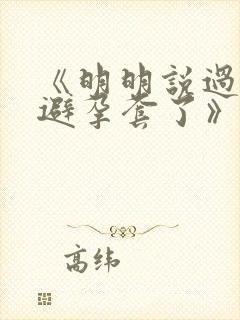 《明明説過
避孕套了》
高纬